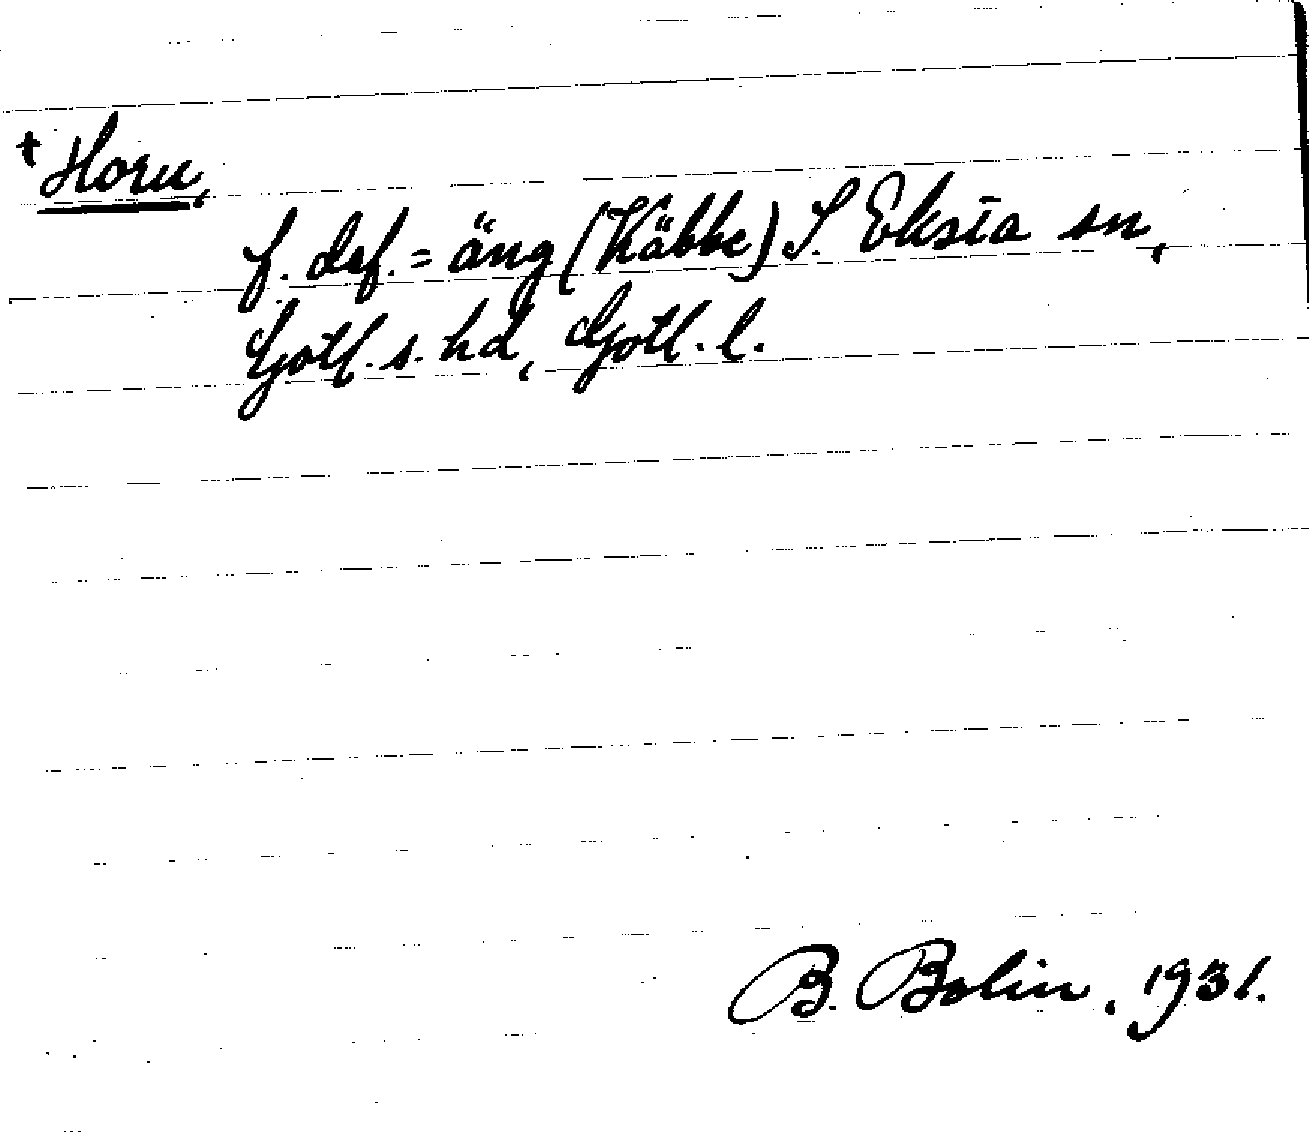 † Horu,
f. def. = äng (Käbbe) S. Eksta sn,
Gotl. s. hd, Gotl. l.
B. Bolin. 1931.